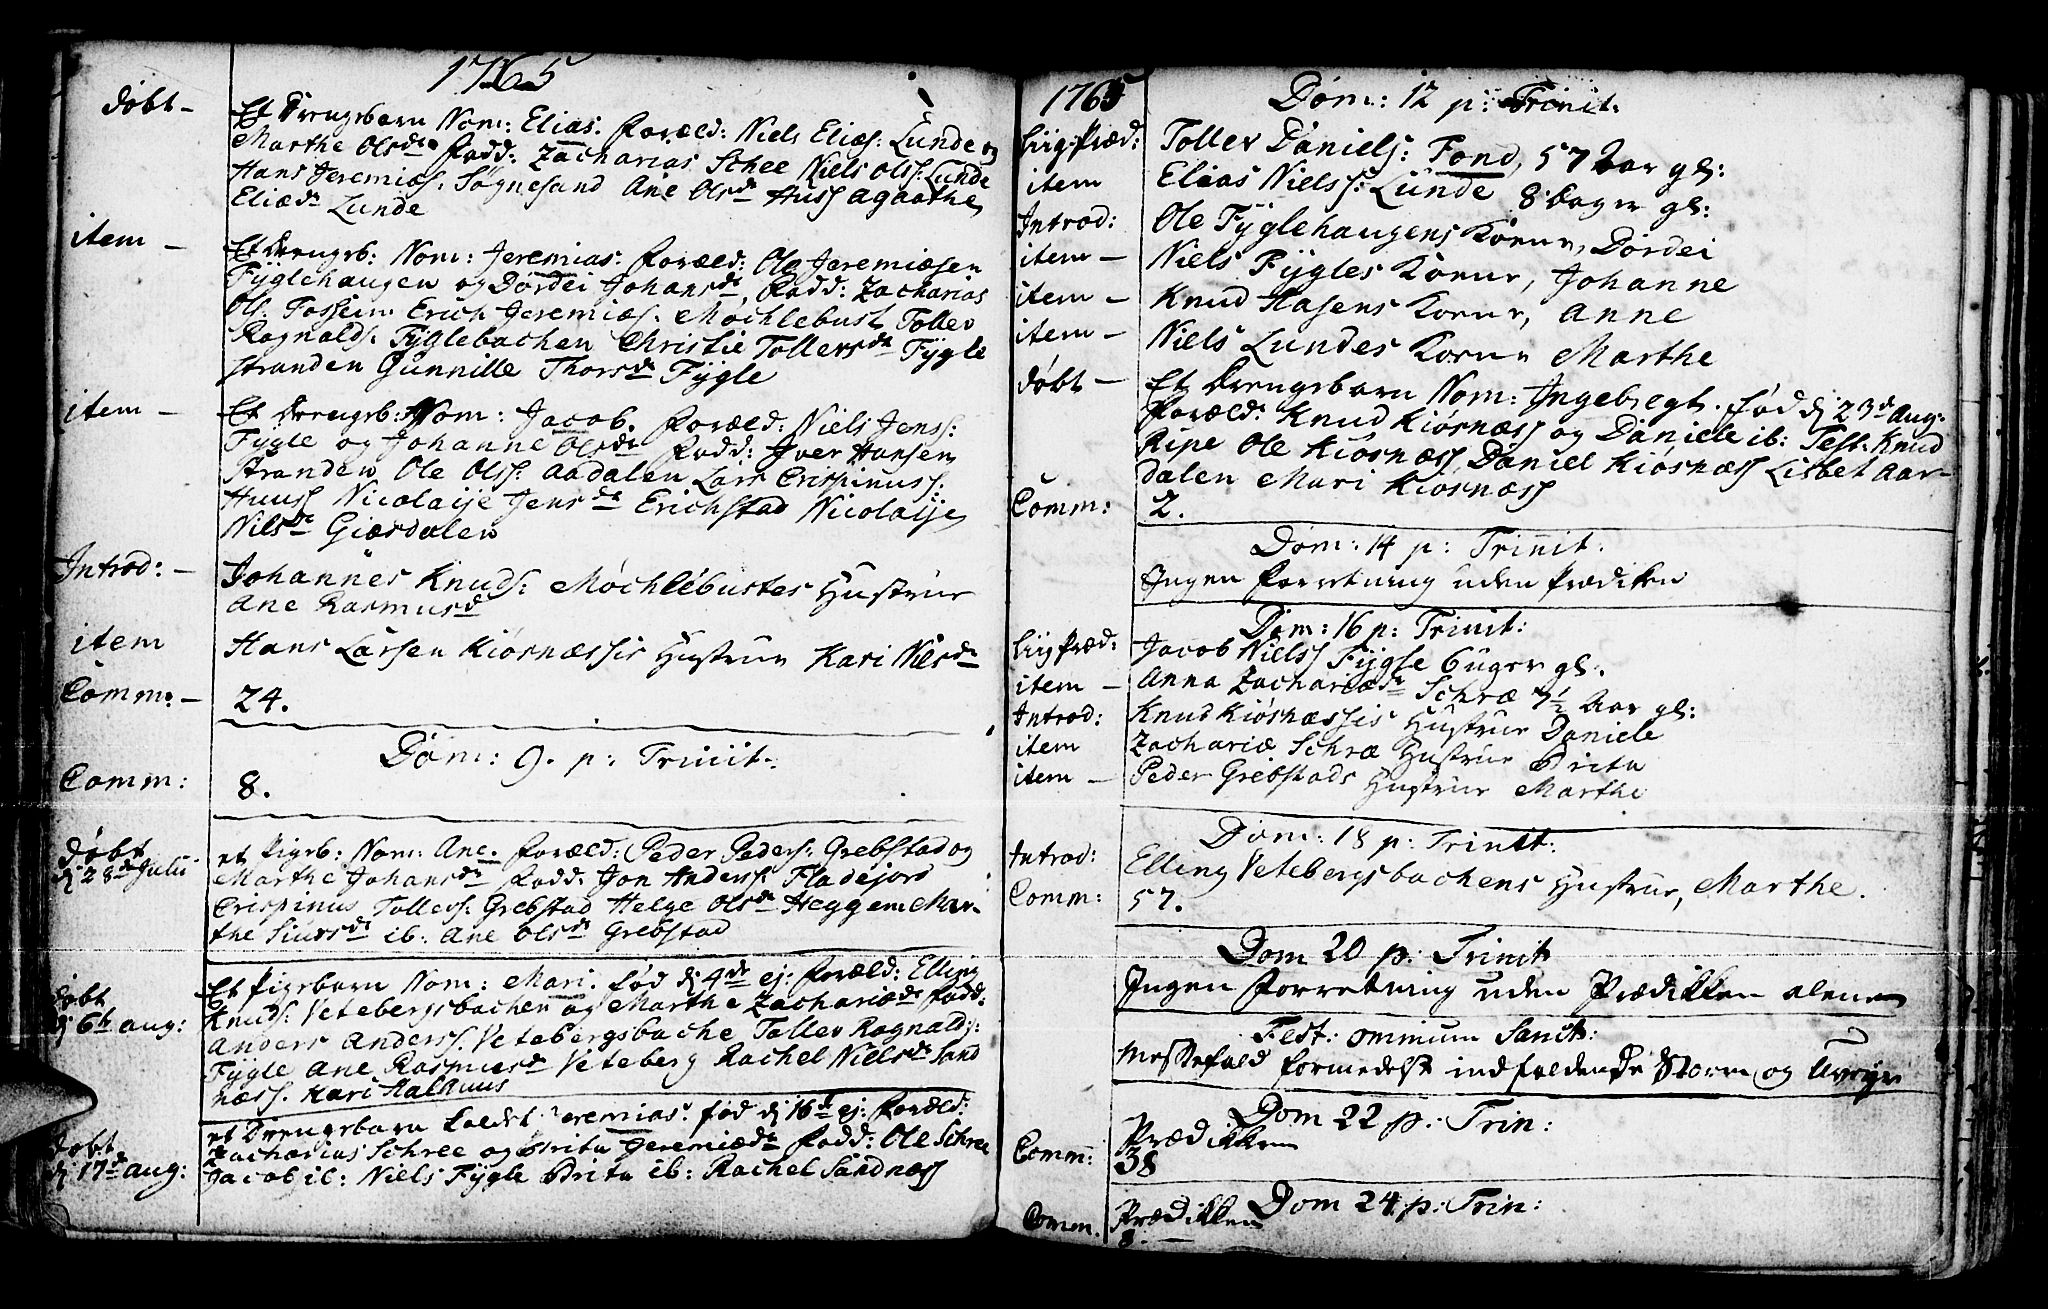 1765
døbt – Et Drengebarn Nom: Elias. Foræld: Niels Eliæs: Lunde og
Marthe Olsdr Fadd: Zacharias Schee Niels Olss: Lunde
Hans Jeremiæs: Søgnesand Ane Olsdr Huss Agaathe
Eliædr Lunde
item – Et Drengeb: Nom: Jeremias: Foræld: Ole Jeremiæsen
Fÿglehaugen og Dordei Johansdr, Fadd: Zacharias
Ols: Fossein Erich Jeremiæs: Møchlebust Toller
Rognalds: Fÿglebachen Christie Tollersdr Fÿgle
stranden Gunnille Thorsdr Fÿgle
item – Et Drengeb: Nom: Jacob. Foræld: Niels Jenss:
Fÿgle og Johanne Olsdr Fadd: Iver Hansen
Stranden Ole Olss: Aadalen Lars Crispinuss:
Huuss Nicolaije Jensdr Erichstad Nicolaije
Nilsdr Giærdalen
Introd: – Johannes Knuds: Møchlebustes Hustrue
Ane Rasmusd
item Hans Larsen Kiørnæssis Hustrue Kari Nilsdr
Comm: – 24.
Dom: 9. p: Trinit:
Comm: 8.
døbt et Pigeb: Nom: Ane. Foræld: Peder Peders: Grebstad og
d 28de Julii Marthe Johansdr Fadd: Jon Anderss: Fladejord
Crispinus Tollers: Grebstad Helge Olsdr Heggem Mar-
the Siursdr ib: Ane Olsdr Grebstad
døbt Et Pigebarn Nom: Mari. fød d 4de ej: Foræld: Elling
d 6te aug: Knuds: Vetebergsbachen og Marthe Zachariædr Fadd:
Anders Anderss: Vetebergsbache Toller Rognalds:
Fÿgle Ane Rasmusdr Veteberg Rachel Nielsdr Sand
næss. Kari Aalhuus
døbt et Drengebarn kaldet Jeremias. fød d 16de ej: Foræld:
d 17de aug: Zacharias Schree og Brita Jeremiædr Fadd: Ole Schree
Jacob ib: Niels Fÿgle Brita ib: Rachel Sandnæss
1765 Dom: 12 p: Trinit:
Liig:Præd: Toller Daniels: Fond, 57 Aar gl:
item Elias Nielss: Lunde 8 dager gl:
Introd: Ole Fÿglehaugens Konne, Dordei
item – Niels Fÿgles Konne, Johanne
item – Knud Hasens Konne, Anne
item – Niels Lundes Konne Marthe
døbt – Et Drengebarn Nom: Ingebregt. fød d 23de Aug:
Foræld: Knud Kiørnæss og Daniele ib: Test: Knud
Ripe Ole Kiørnæss, Daniel Kiørnæss Lisbet Aar-
dalen Mari Kiørnæss
Comm: 2.
Dom: 14 p: Trinit:
Ingen Forretning uden Prædiken
Dom: 16 p: Trinit:
Liig Præd: Jacob Nielss Fÿgle 6 uger gl:
item – Anna Zachariædr Schræ 7½ Aar gl:
Introd: Knud Kiørnæssis Hustrue Daniele
item Zachariæ Schræ Hustrue Brita
item – Peder Grebstads Hustrue Marthe
Dom: 18 p: Trinit:
Introd: Elling Vetebergsbachens Hustrue, Marthe.
Comm: 57.
Dom 20 p: Trinit
Ingen Forretning uden Prædikken alene
Fest: omnium Sanct:
Messefald formedelst indfaldende Storm og Uveyr
Dom 22 p: Trin:
Prædikken
Comm: 38
Dom 24 p: Trin:
Prædikken
Comm. 8. –